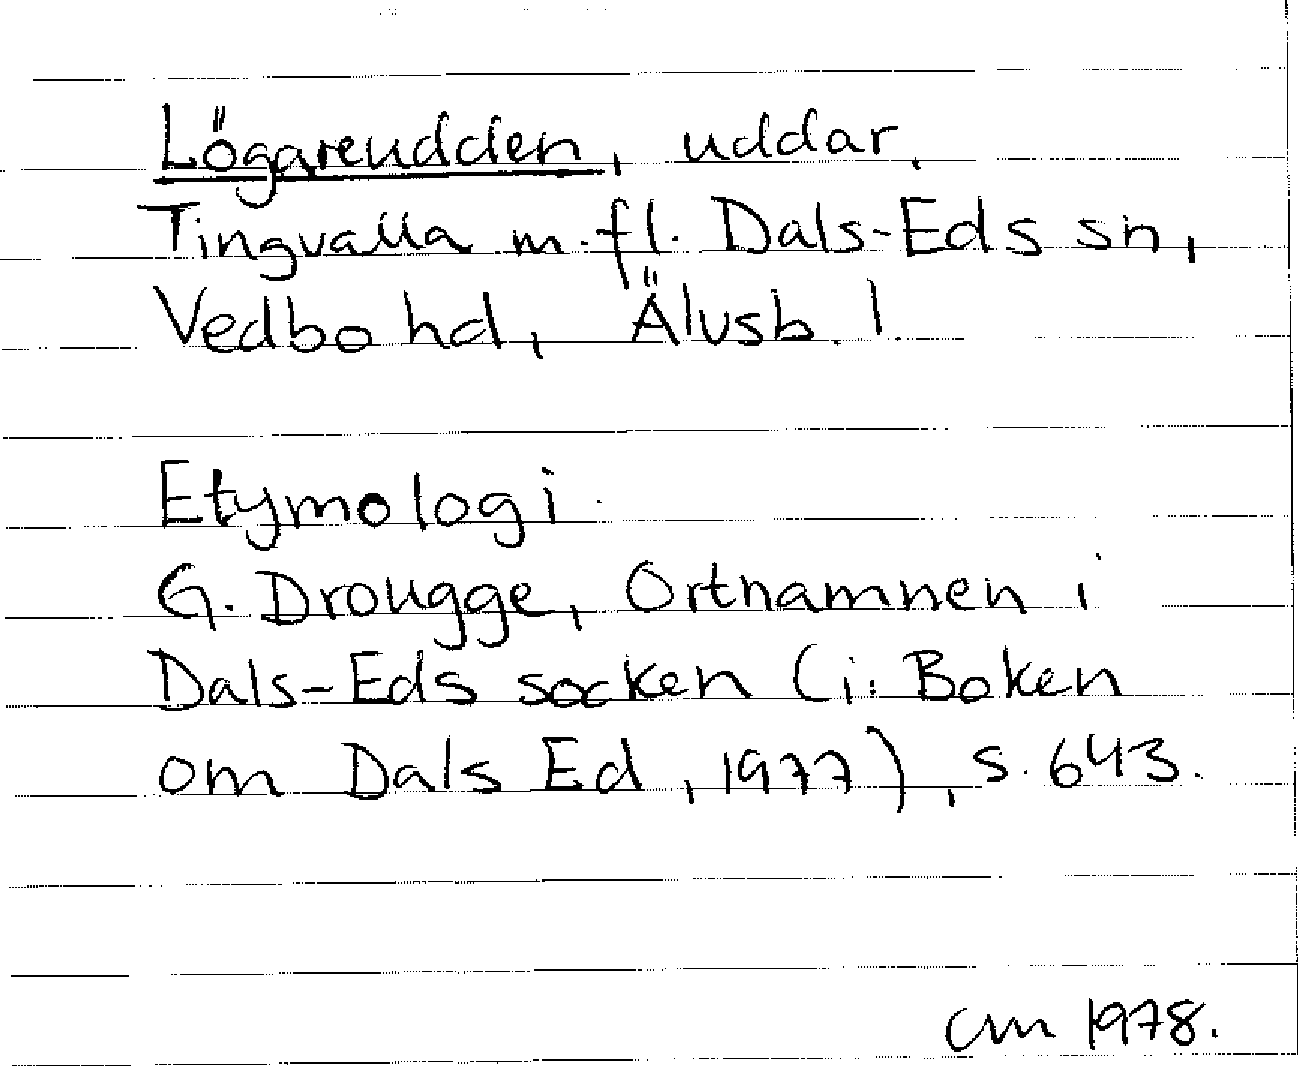 Lögareudden, uddar.
Tingvalla m.fl. Dals-Eds sn,
Vedbo hd, Älvsb. l.
Etymologi.
G. Drougge, Ortnamnen i
Dals-Eds socken (i: Boken
om Dals Ed, 1977), s. 643.
CM 1978.